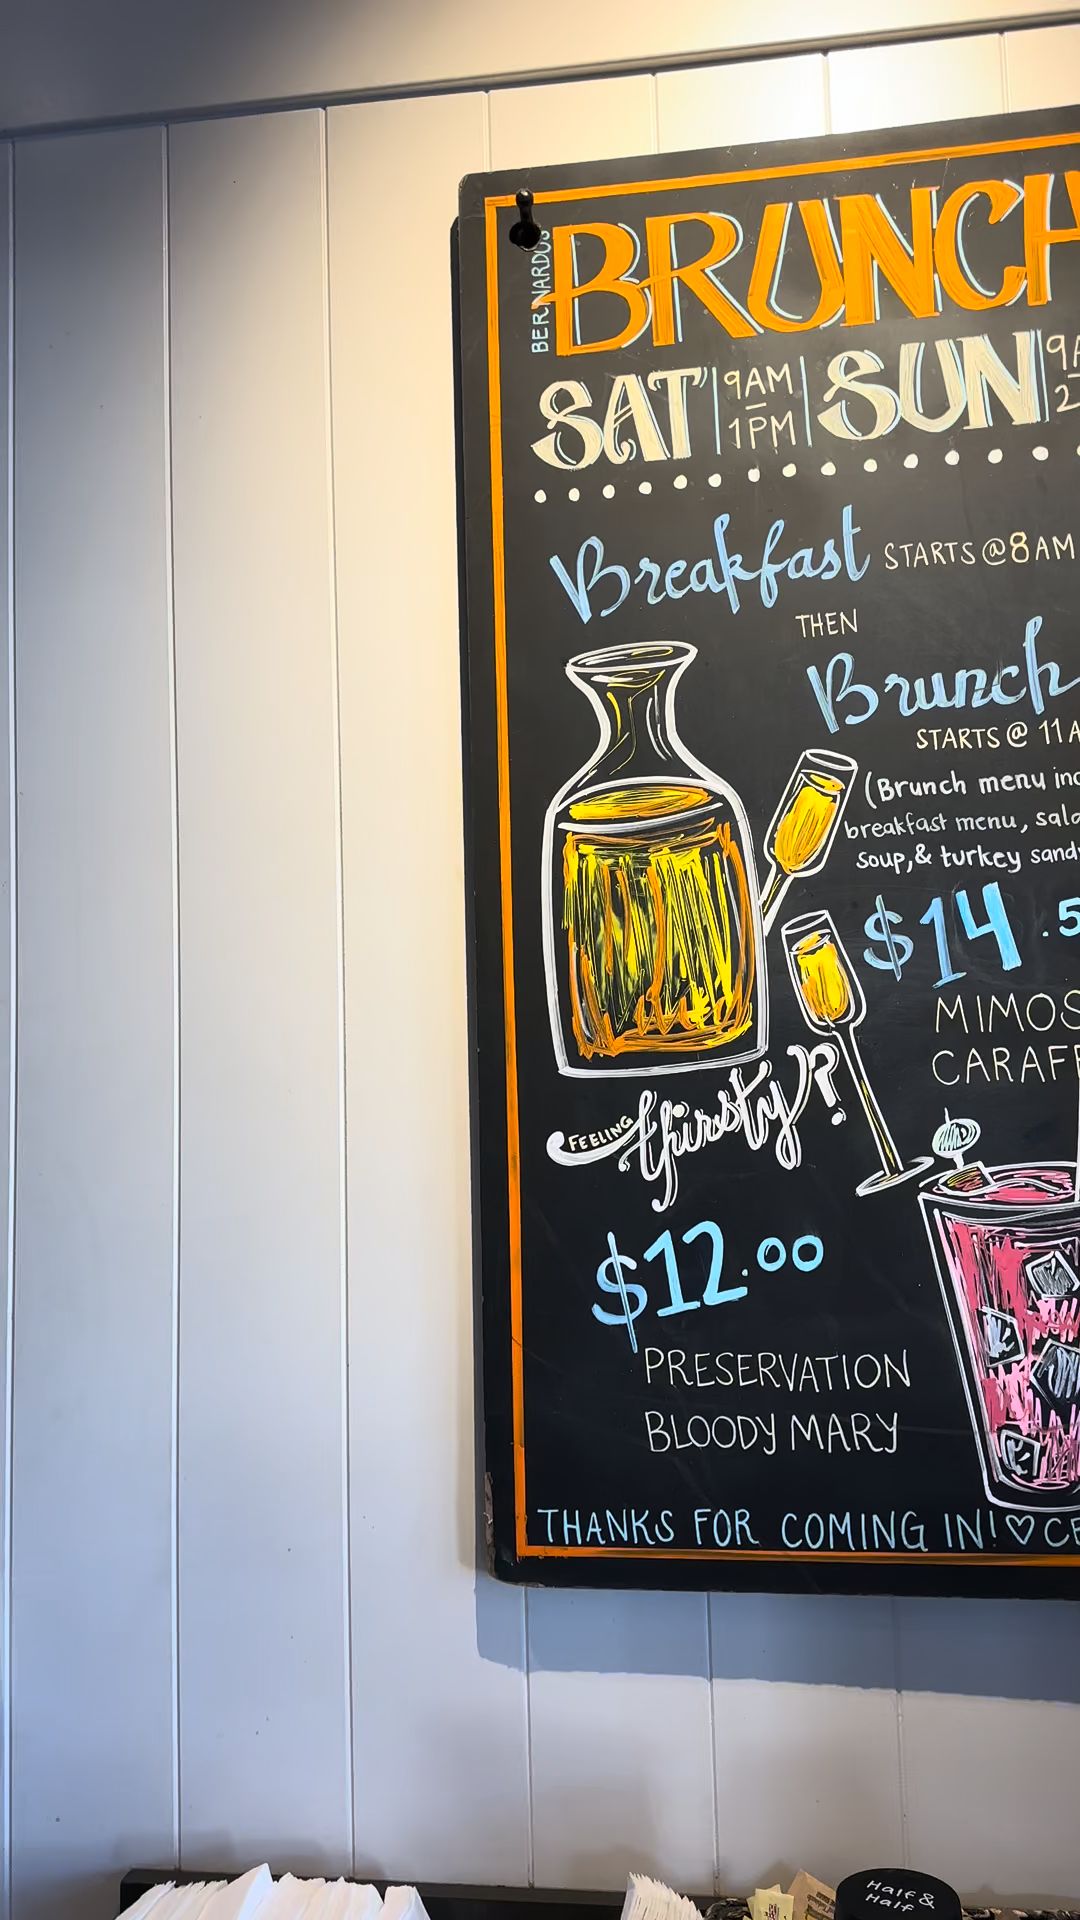 BERNARDUS
BRUNCH
SAT 9AM – 1PM SUN 9A
2
Breakfast STARTS @ 8AM
THEN
Brunch
STARTS @ 11A
(Brunch menu inc
breakfast menu, sala
soup, & turkey sand
$14.5
MIMOS
CARAF
FEELING thirsty?
$12.00
PRESERVATION
BLOODY MARY
THANKS FOR COMING IN! ♡ CE
Half &
Half